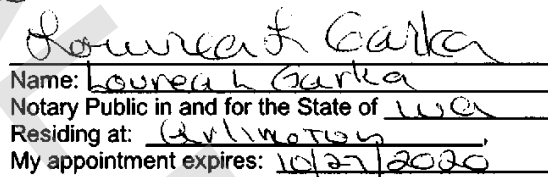 Lourea L Garka
Name: Lourea L Garka
Notary Public in and for the State of WA
Residing at: Arlington,
My appointment expires: 10/27/2020